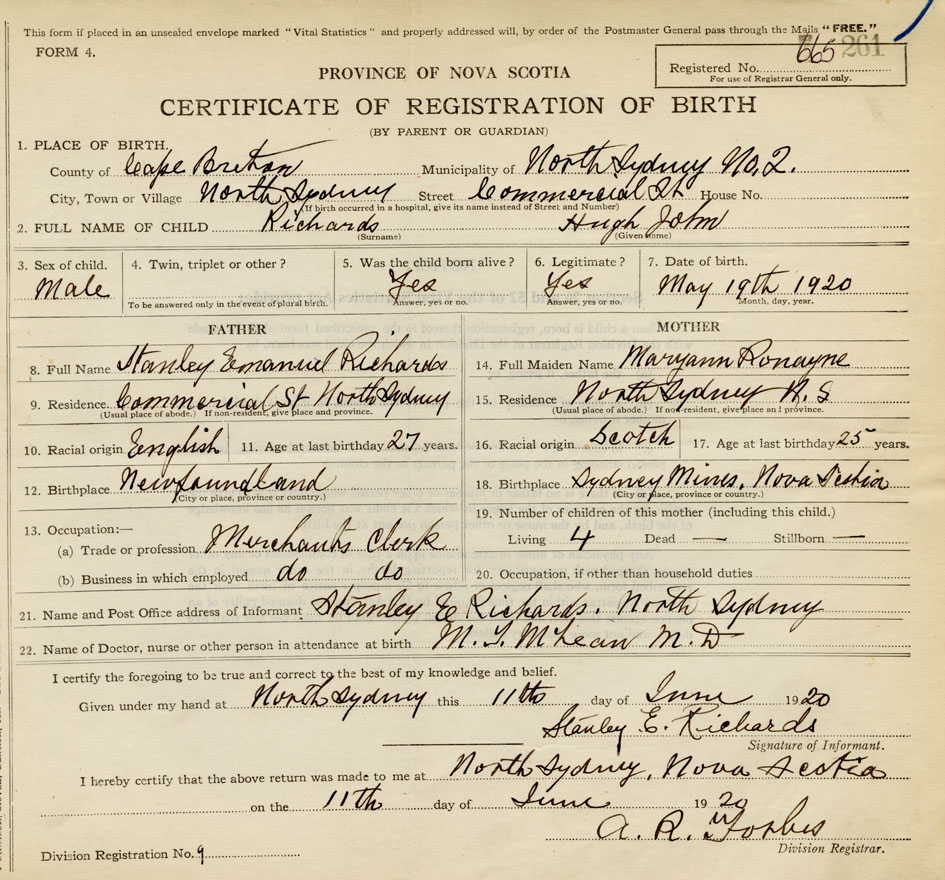 This form if placed in an unsealed envelope marked "Vital Statistics" and properly addressed will, by order of the Postmaster General pass through the Mails "FREE."
FORM 4.
665 261
Registered No.
For use of Registrar General only.
PROVINCE OF NOVA SCOTIA
CERTIFICATE OF REGISTRATION OF BIRTH
(BY PARENT OR GUARDIAN)
1. PLACE OF BIRTH.
County of Cape Breton Municipality of North Sydney No. 2.
City, Town or Village North Sydney Street Commercial St House No.
(If birth occurred in a hospital, give its name instead of Street and Number)
2. FULL NAME OF CHILD Richards Hugh John
(Surname) (Given name)
3. Sex of child. 4. Twin, triplet or other? 5. Was the child born alive? 6. Legitimate? 7. Date of birth.
Male Yes Yes May 19th 1920
To be answered only in the event of plural birth. Answer, yes or no. Answer, yes or no. Month, day, year.
FATHER MOTHER
8. Full Name Stanley Emanuel Richards 14. Full Maiden Name Maryann Ronayne
9. Residence Commercial St North Sydney 15. Residence North Sydney N. S
(Usual place of abode.) If non-resident, give place and province. (Usual place of abode.) If non-resident, give place and province.
10. Racial origin English 11. Age at last birthday 27 years. 16. Racial origin Scotch 17. Age at last birthday 25 years.
12. Birthplace Newfoundland 18. Birthplace Sydney Mines, Nova Scotia
(City or place, province or country.) (City or place, province or country.)
13. Occupation:— 19. Number of children of this mother (including this child.)
(a) Trade or profession Merchants Clerk Living 4 Dead — Stillborn —
(b) Business in which employed do do 20. Occupation, if other than household duties
21. Name and Post Office address of Informant Stanley E Richards. North Sydney
22. Name of Doctor, nurse or other person in attendance at birth M. T. McLean M. D
I certify the foregoing to be true and correct to the best of my knowledge and belief.
Given under my hand at North Sydney this 11th day of June 1920
Stanley E. Richards
Signature of Informant.
I hereby certify that the above return was made to me at North Sydney, Nova Scotia
on the 11th day of June 1920
A. R. Forbes
Division Registrar.
Division Registration No. 9